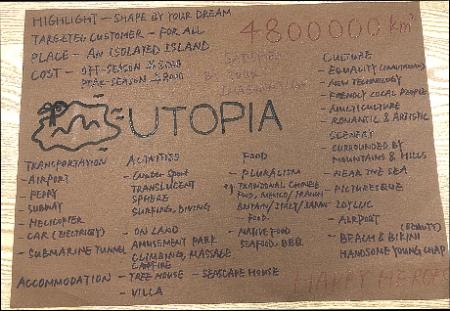 HIGHLIGHT - SHAPE BY YOUR DREAM
TARGETED CUSTOMER - FOR ALL
PLACE - AN ISOLATED ISLAND
COST - OFF-SEASON
PEAK-SEASON
4800000 km²
BY YOUR
UTOPIA
CULTURE
- EQUALITY
- NEW TECHNOLOGY
- FRIENDLY LOCAL PEOPLE
- MULTICULTURE
- ROMANTIC & ARTISTIC
SCENERY
- SURROUNDED BY
MOUNTAINS & HILLS
- NEAR THE SEA
PICTURESQUE
- IDYLLIC
- AIRPORT
- BEACH & BIKINI
HANDSOME YOUNG CHAP
TRANSPORTATION
- AIRPORT
- FERRY
- SUBWAY
- HELICOPTER
- CAR (ELECTRICITY)
- SUBMARINE TUNNEL
ACTIVITIES
- Water Sport
TRANSLUCENT
SPHERE
SURFING, DIVING
- ON LAND
AMUSEMENT PARK
CLIMBING, MASSAGE
CAMPFIRE
FOOD
- PLURALISM
TRADITIONAL CHINESE
FOOD, MEXICO/
BRITAIN/ITALY/
FOOD.
- NATIVE FOOD
SEAFOOD, BBQ
ACCOMMODATION - TREE HOUSE - SEASCAPE HOUSE
- VILLA
HAPPY